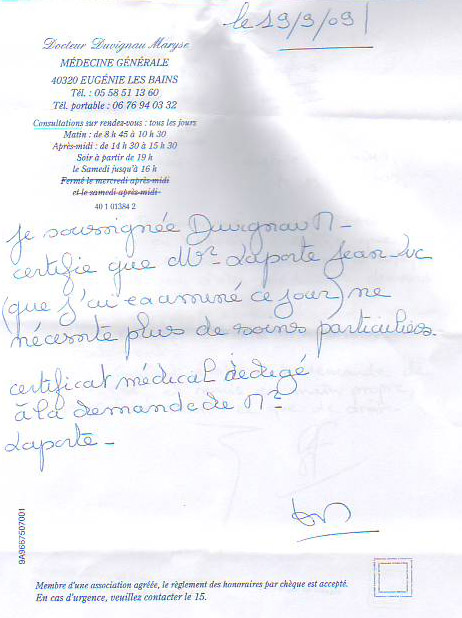 le 19/9/09
Docteur Duvignau Maryse
MÉDECINE GÉNÉRALE
40320 EUGÉNIE LES BAINS
Tél. : 05 58 51 13 60
Tél. portable : 06 76 94 03 32
Consultations sur rendez-vous : tous les jours
Matin : de 8 h 45 à 10 h 30
Après-midi : de 14 h 30 à 15 h 30
Soir à partir de 19 h
le Samedi jusqu'à 16 h
Fermé le mercredi après-midi
et le samedi après-midi
40 1 01384 2
Je soussignée Duvignau M
certifie que Mr Laporte Jean-Luc
(que j'ai examiné ce jour) ne
nécessite plus de soins particuliers.
certificat médical rédigé
à la demande de Mr
Laporte -
9A9667507001
Membre d'une association agréée, le règlement des honoraires par chèque est accepté.
En cas d'urgence, veuillez contacter le 15.